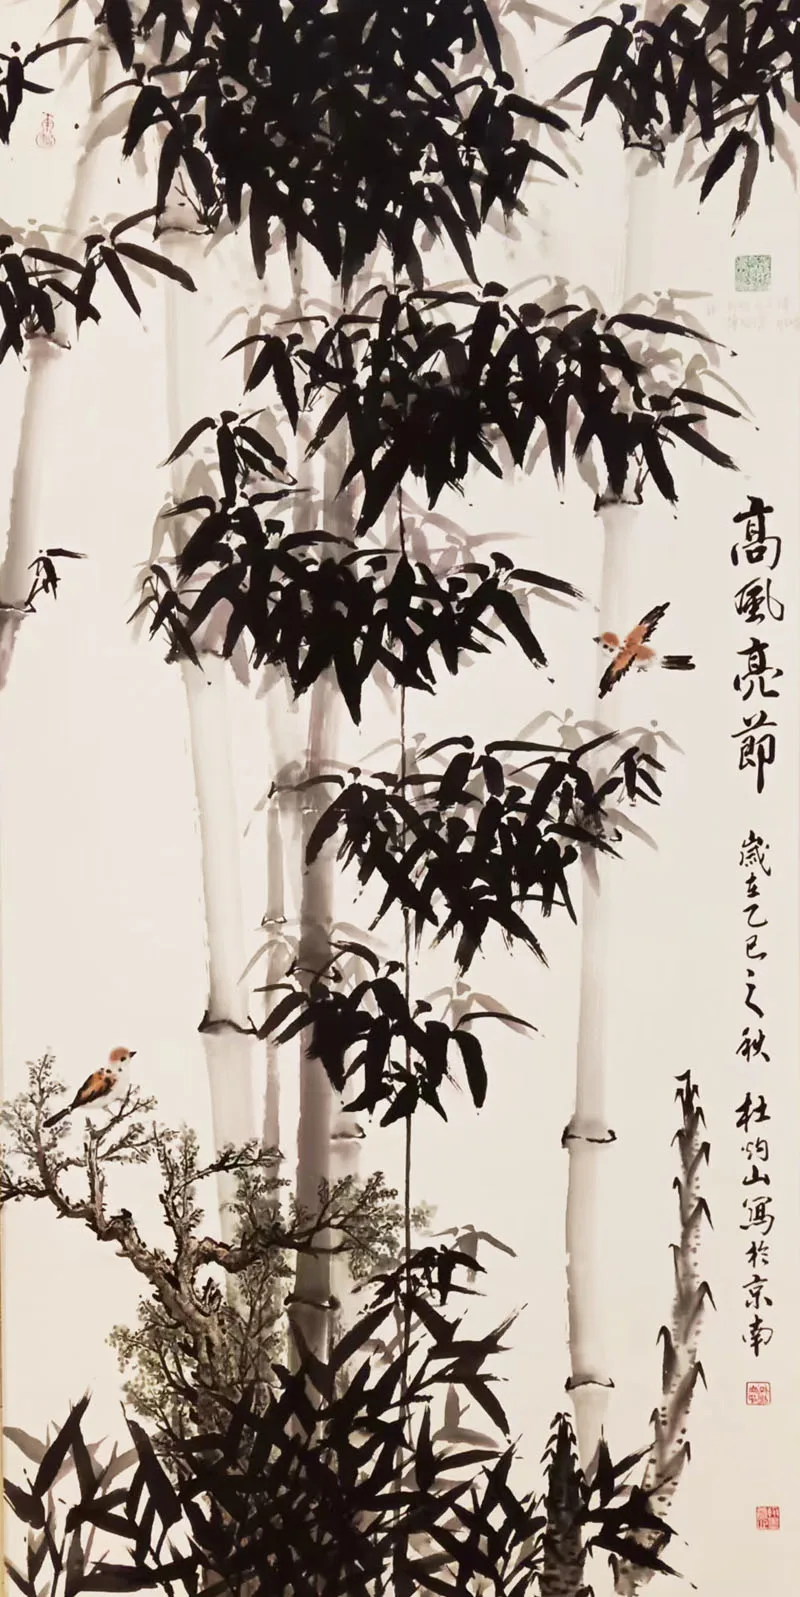 高風亮節
歲在乙巳之秋 杜灼山寫於京南